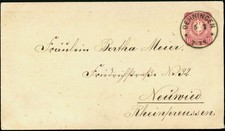 Fräulein Bertha Meier,
Friedrichstraße No 32
Neuwied
Rheinpreussen